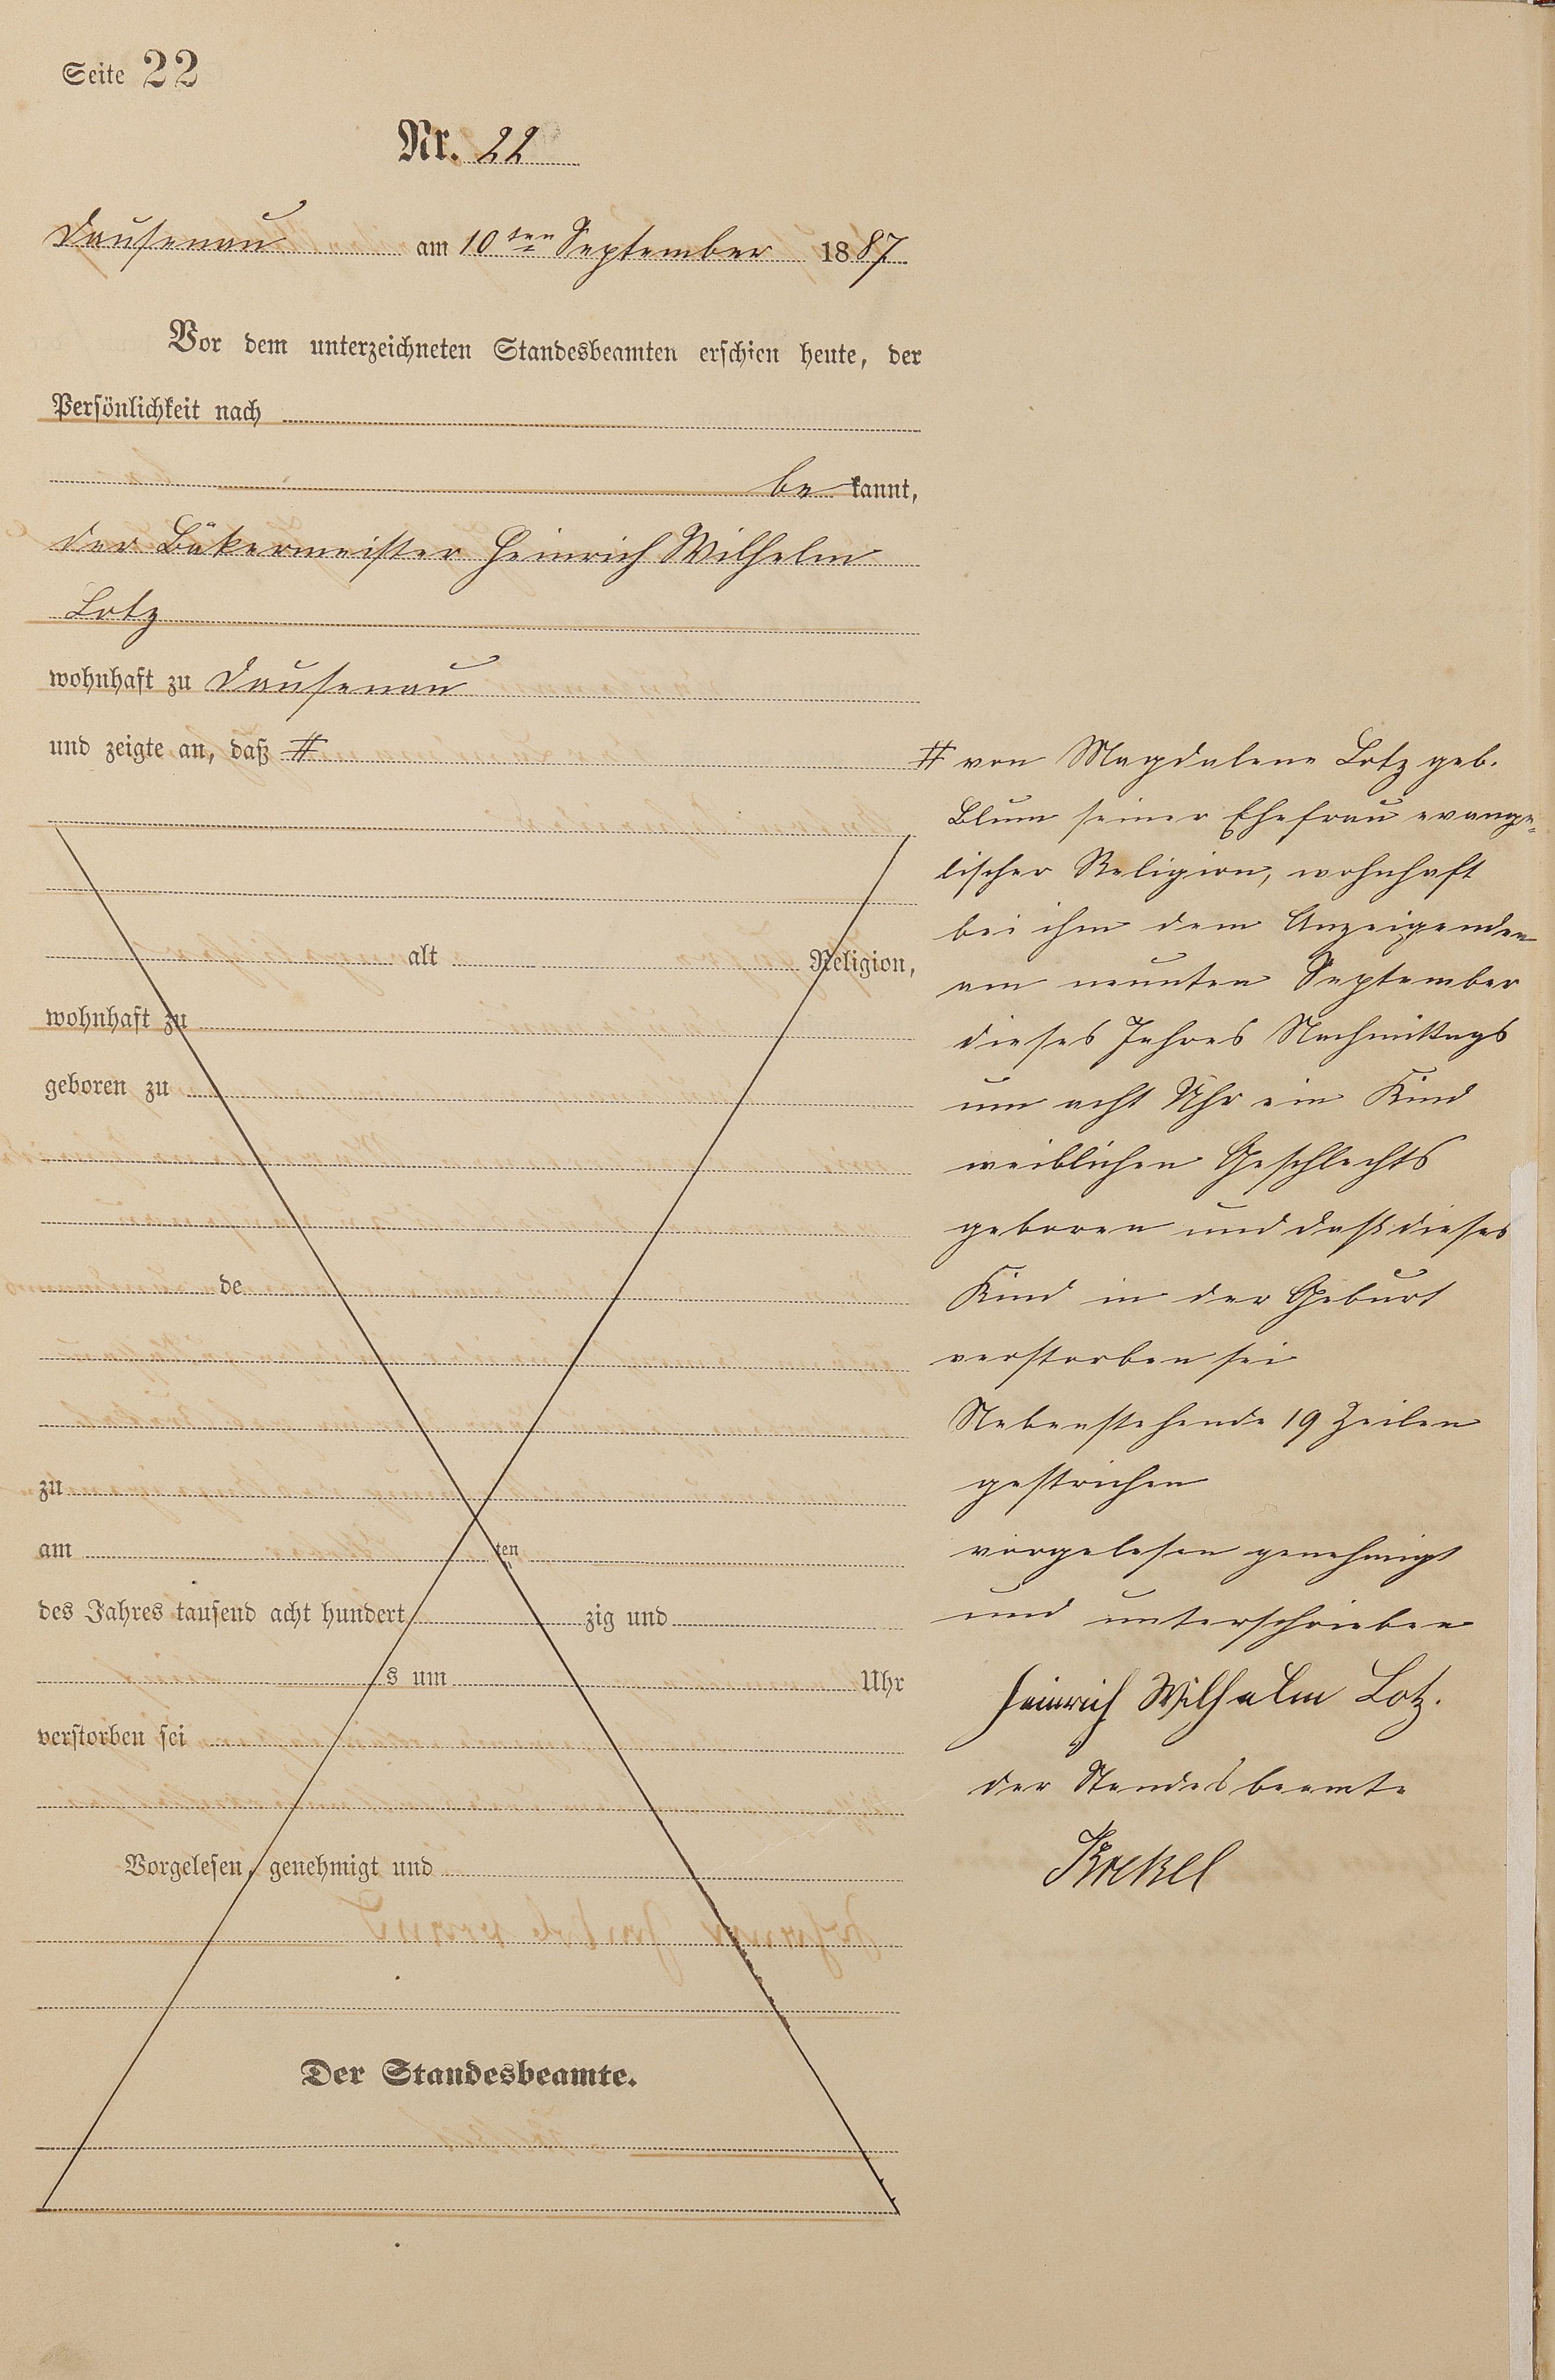 Seite 22
Nr. 22
Dausenau am 10ten September 1887
Vor dem unterzeichneten Standesbeamten erschien heute, der
Persönlichkeit nach
bekannt,
der Bäkermeister Heinrich Wilhelm
Lotz
wohnhaft zu Dausenau
und zeigte an, daß #
alt Religion,
wohnhaft zu
geboren zu
de
zu
am ten
des Jahres tausend acht hundert zig und
s um Uhr
verstorben sei
Vorgelesen, genehmigt und
Der Standesbeamte.
# von Magdalene Lotz geb.
Blum seiner Ehefrau evange-
lischer Religion, wohnhaft
bei ihm dem Anzeigenden
am neunten September
dieses Jahres Nachmittags
um acht Uhr ein Kind
weiblichen Geschlechts
geboren und daß dieses
Kind in der Geburt
verstorben sei
Nebenstehende 19 Zeilen
gestrichen
vorgelesen genehmigt
und unterschrieben
Heinrich Wilhelm Lotz.
der Standesbeamte